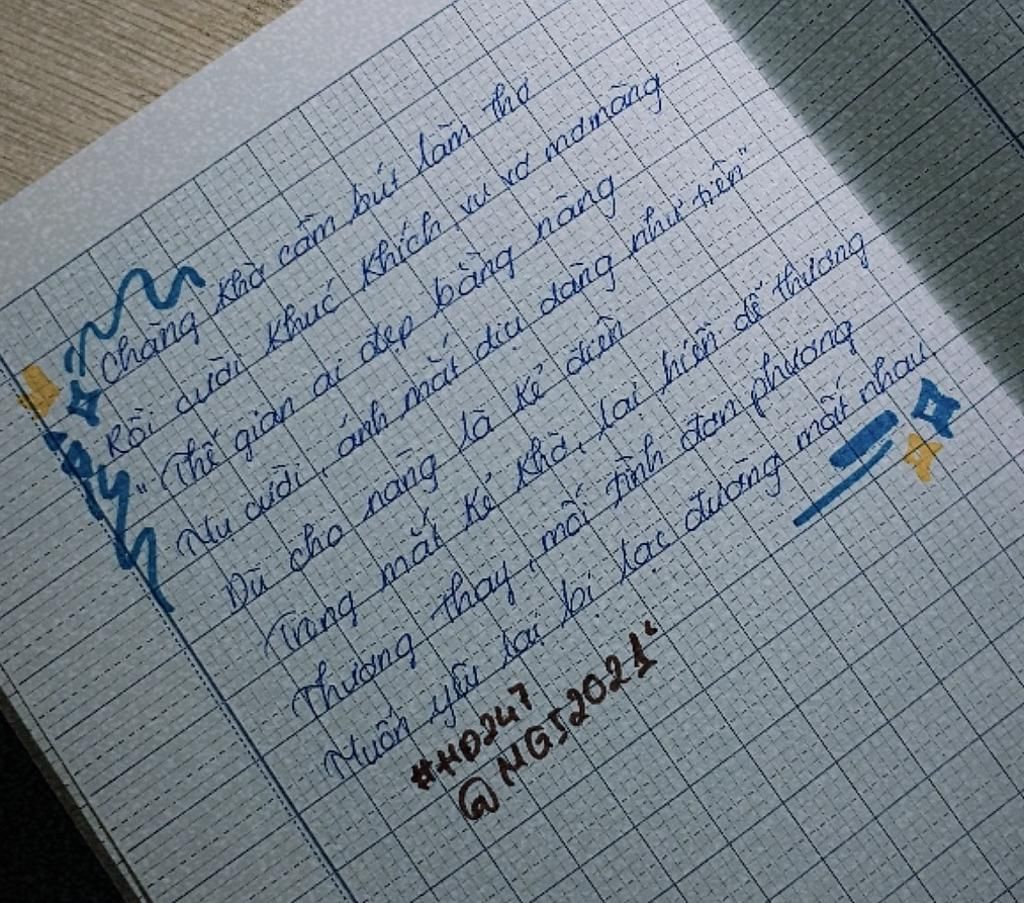 Chàng khờ cầm bút làm thơ
Rồi cười khúc khích vu vơ mơ màng
"Thế gian ai đẹp bằng nàng
Nụ cười, ánh mắt dịu dàng như tiên"
Dù cho nàng là kẻ điên
Trong mắt kẻ khờ, lại hiền dễ thương
Thương thay, mối tình đơn phương
Muốn yêu lại bị lạc đường mất nhau
#HD247
@MGI2021